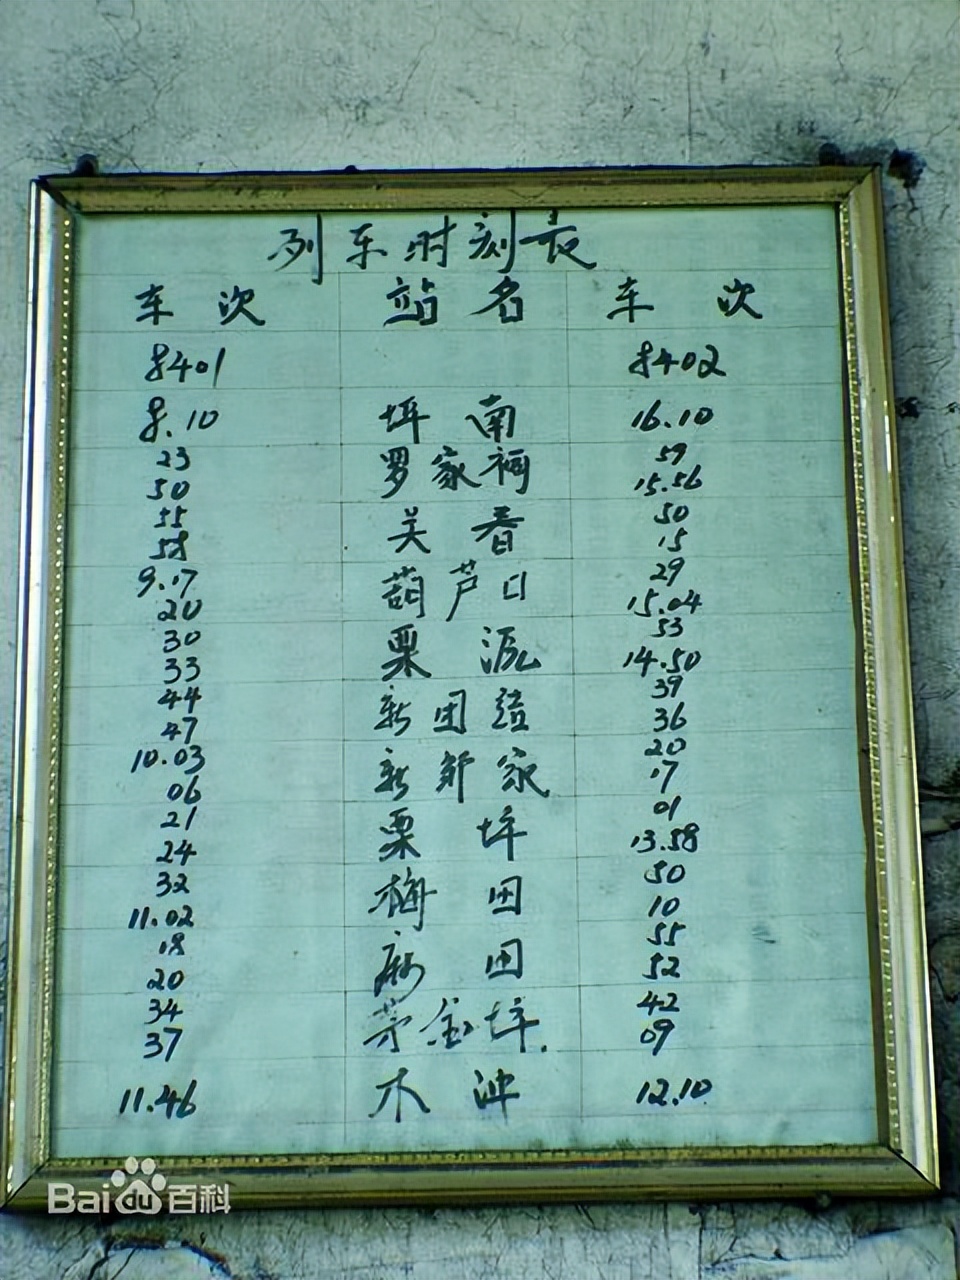 列车时刻表
车次 站名 车次
8401 8402
8.10 坪南 16.10
23 罗家 59
50 15.56
55 关春 50
58 15
9.17 葫芦口 29
20 15.04
30 栗 53
33 14.50
44 新田 39
47 36
10.03 新邹家 20
06 17
21 栗坪 01
24 13.58
32 梅田 50
11.02 10
18 麻田 55
20 52
34 茅金坪. 42
37 09
11.46 木冲 12.10
Baidu百科